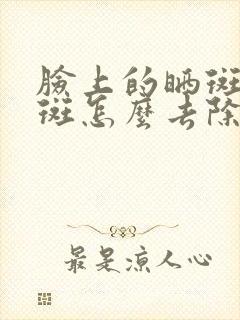 臉上的晒斑
斑怎麼去除
最是涼人心